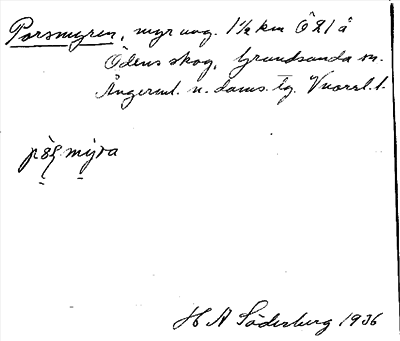 Porsmyren, myr uag. 1½ km Ö 21 å
Ödens skog, Grundsunda sn.
Ångerml. n. doms. tg. Vnorrl. l.
mýra
H A Söderberg 1936